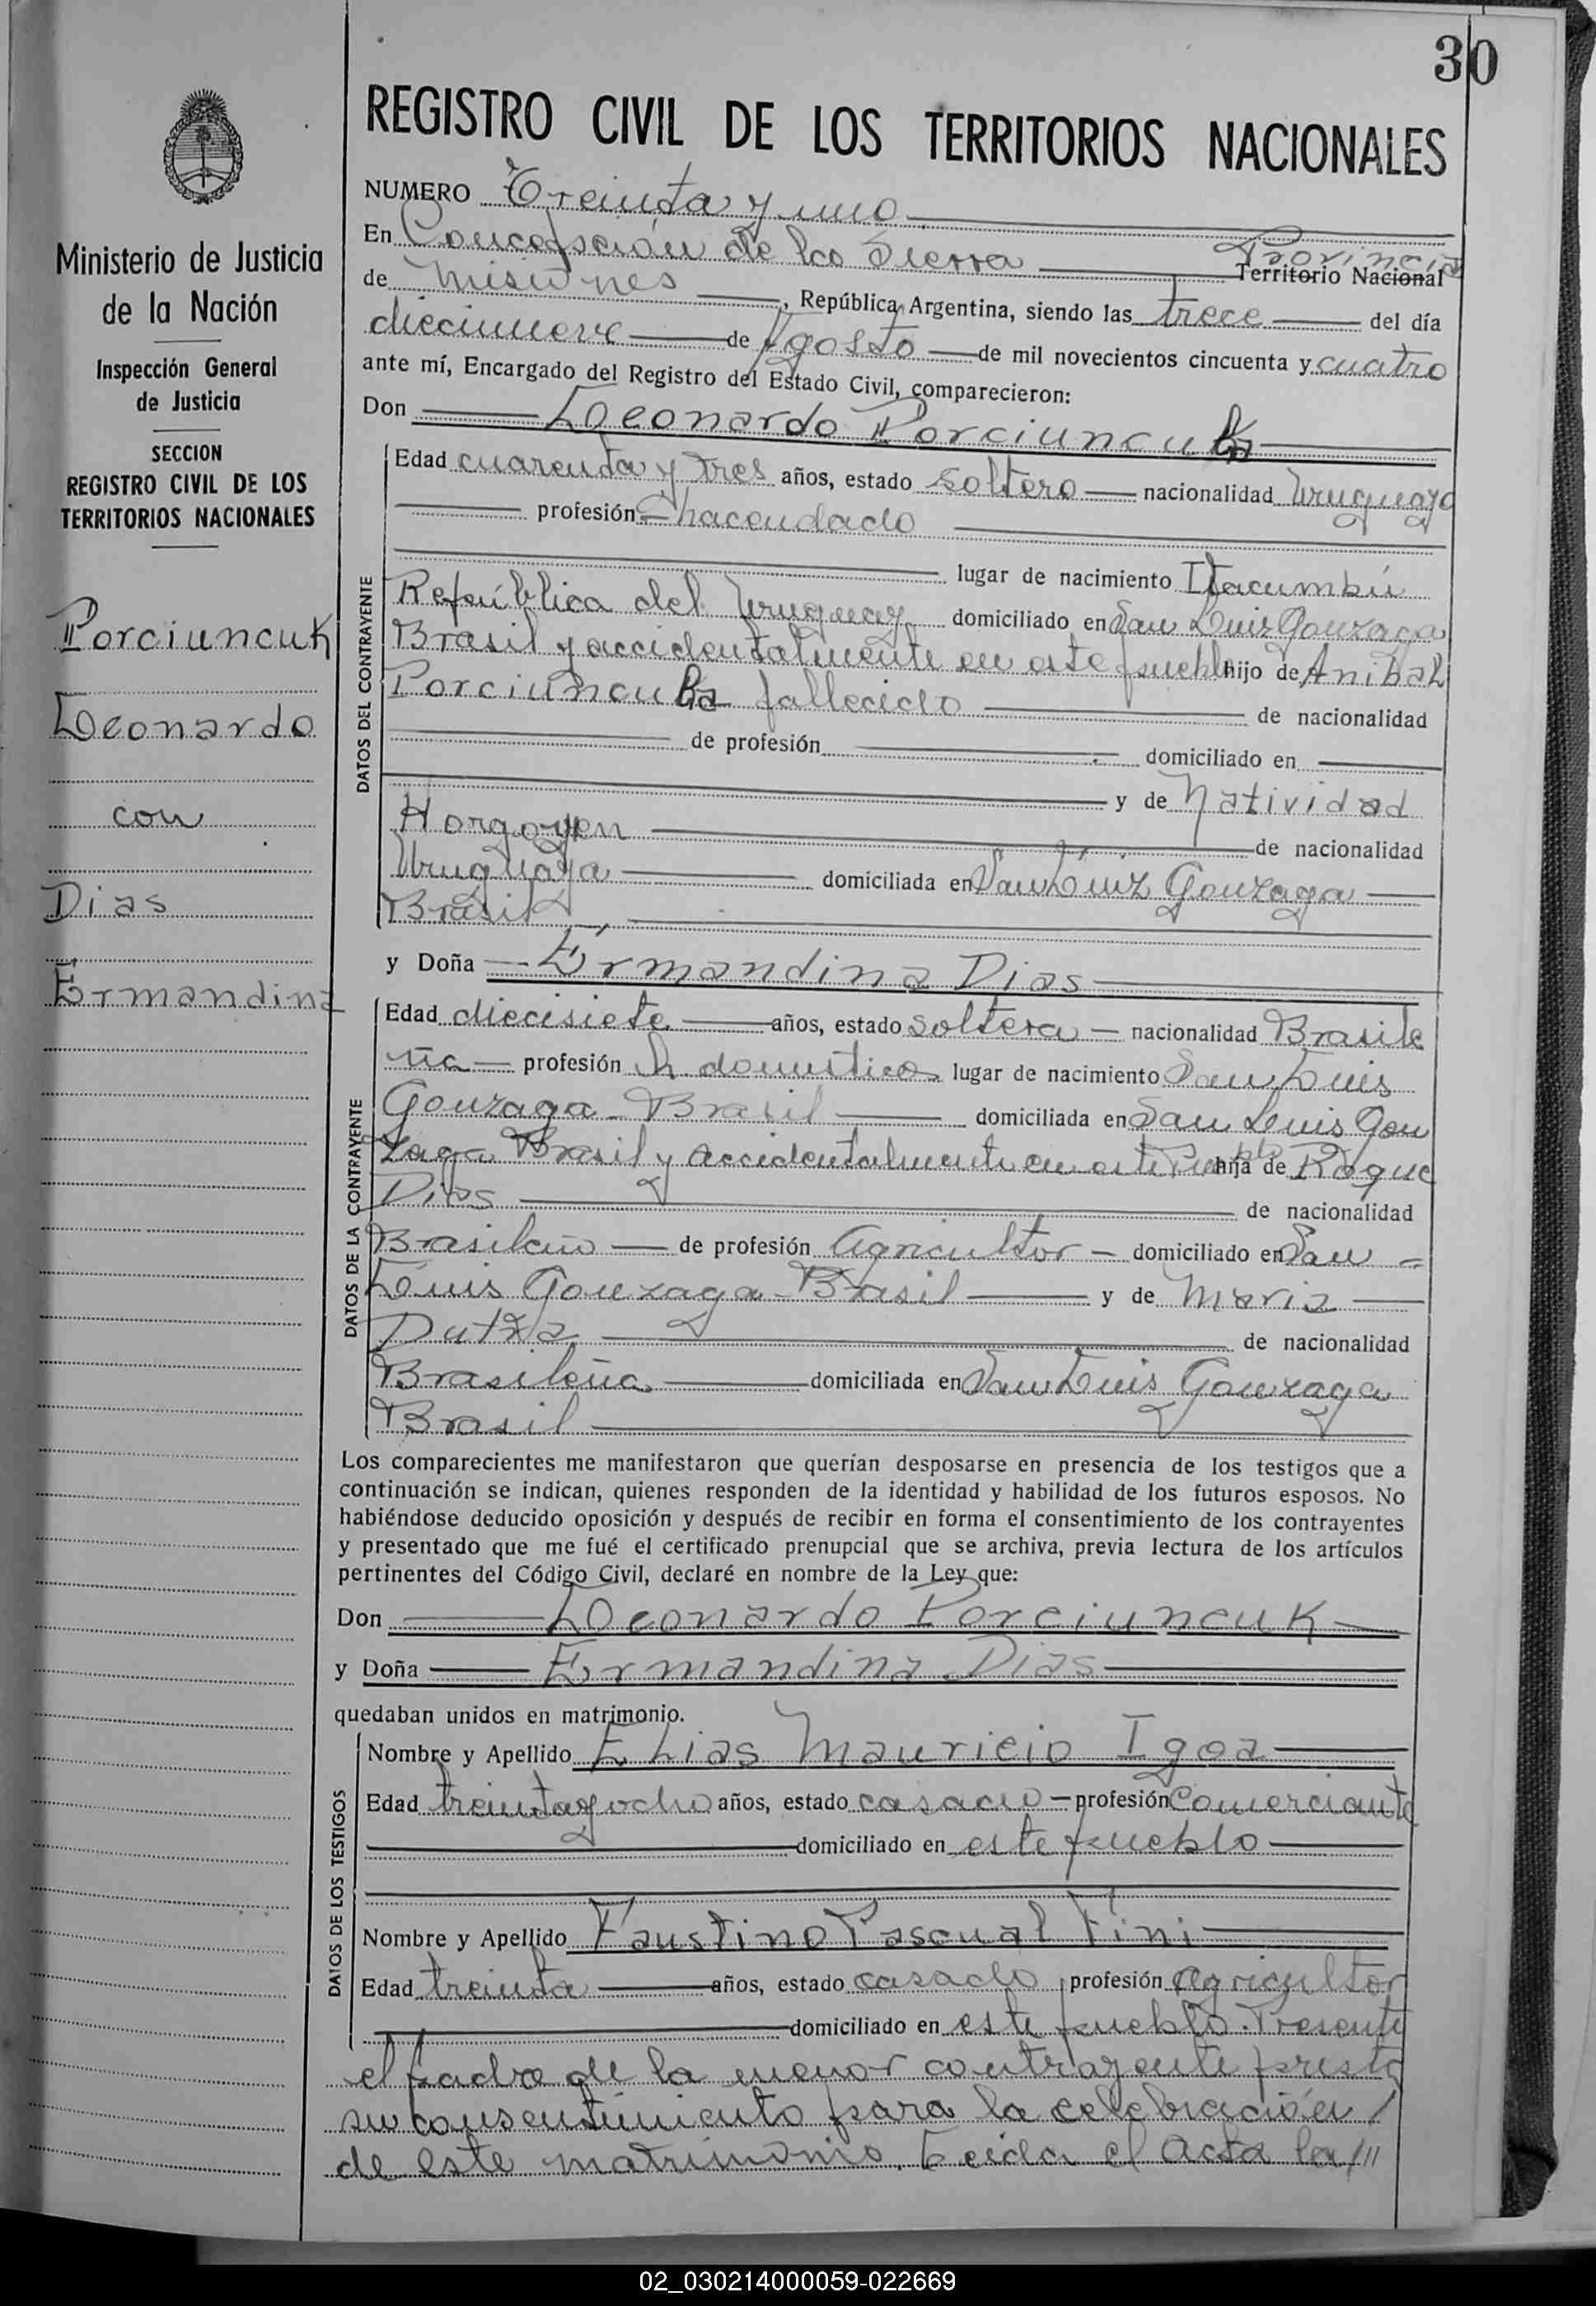 30
REGISTRO CIVIL DE LOS TERRITORIOS NACIONALES
Ministerio de Justicia
de la Nación
Inspección General
de Justicia
SECCION
REGISTRO CIVIL DE LOS
TERRITORIOS NACIONALES
Porciuncuk
Leonardo
con
Dias
Ermandina
NUMERO Treinta y uno
En Concepción de la Sierra Provincia Territorio Nacional
de Misiones, República Argentina, siendo las trece del día
diecinueve de Agosto de mil novecientos cincuenta y cuatro
ante mí, Encargado del Registro del Estado Civil, comparecieron:
Don Leonardo Porciuncula
DATOS DEL CONTRAYENTE
Edad cuarenta y tres años, estado soltero nacionalidad Uruguayo
profesión hacendado
lugar de nacimiento Itacumbú
República del Uruguay domiciliado en San Luiz Gonzaga
Brasil y accidentalmente en este pueblo hijo de Anibal
Porciuncula fallecido de nacionalidad
de profesión domiciliado en
y de Natividad
Horgoyen de nacionalidad
Uruguaya domiciliada en San Luiz Gonzaga
Brasil
y Doña Ermandina Dias
DATOS DE LA CONTRAYENTE
Edad diecisiete años, estado soltera nacionalidad Brasile
ña profesión domesticos lugar de nacimiento San Luis
Gonzaga Brasil domiciliada en San Luis Gon
zaga Brasil y accidentalmente en este Pueblo hija de Roque
Dias de nacionalidad
Brasileño de profesión Agricultor domiciliado en San
Luis Gonzaga Brasil y de Maria
Dutra de nacionalidad
Brasileña domiciliada en San Luis Gonzaga
Brasil
Los comparecientes me manifestaron que querían desposarse en presencia de los testigos que a
continuación se indican, quienes responden de la identidad y habilidad de los futuros esposos. No
habiéndose deducido oposición y después de recibir en forma el consentimiento de los contrayentes
y presentado que me fué el certificado prenupcial que se archiva, previa lectura de los artículos
pertinentes del Código Civil, declaré en nombre de la Ley que:
Don Leonardo Porciuncuk
y Doña Ermandina Dias
quedaban unidos en matrimonio.
DATOS DE LOS TESTIGOS
Nombre y Apellido Elias Mauricio Igoa
Edad treinta y ocho años, estado casado profesión Comerciante
domiciliado en este pueblo
Nombre y Apellido Faustino Pascual Fini
Edad treinta años, estado casado profesión agricultor
domiciliado en este pueblo. Presente
el padre de la menor contrayente presta
su consentimiento para la celebración /
de este matrimonio. Leida el Acta la ///
02_030214000059-022669